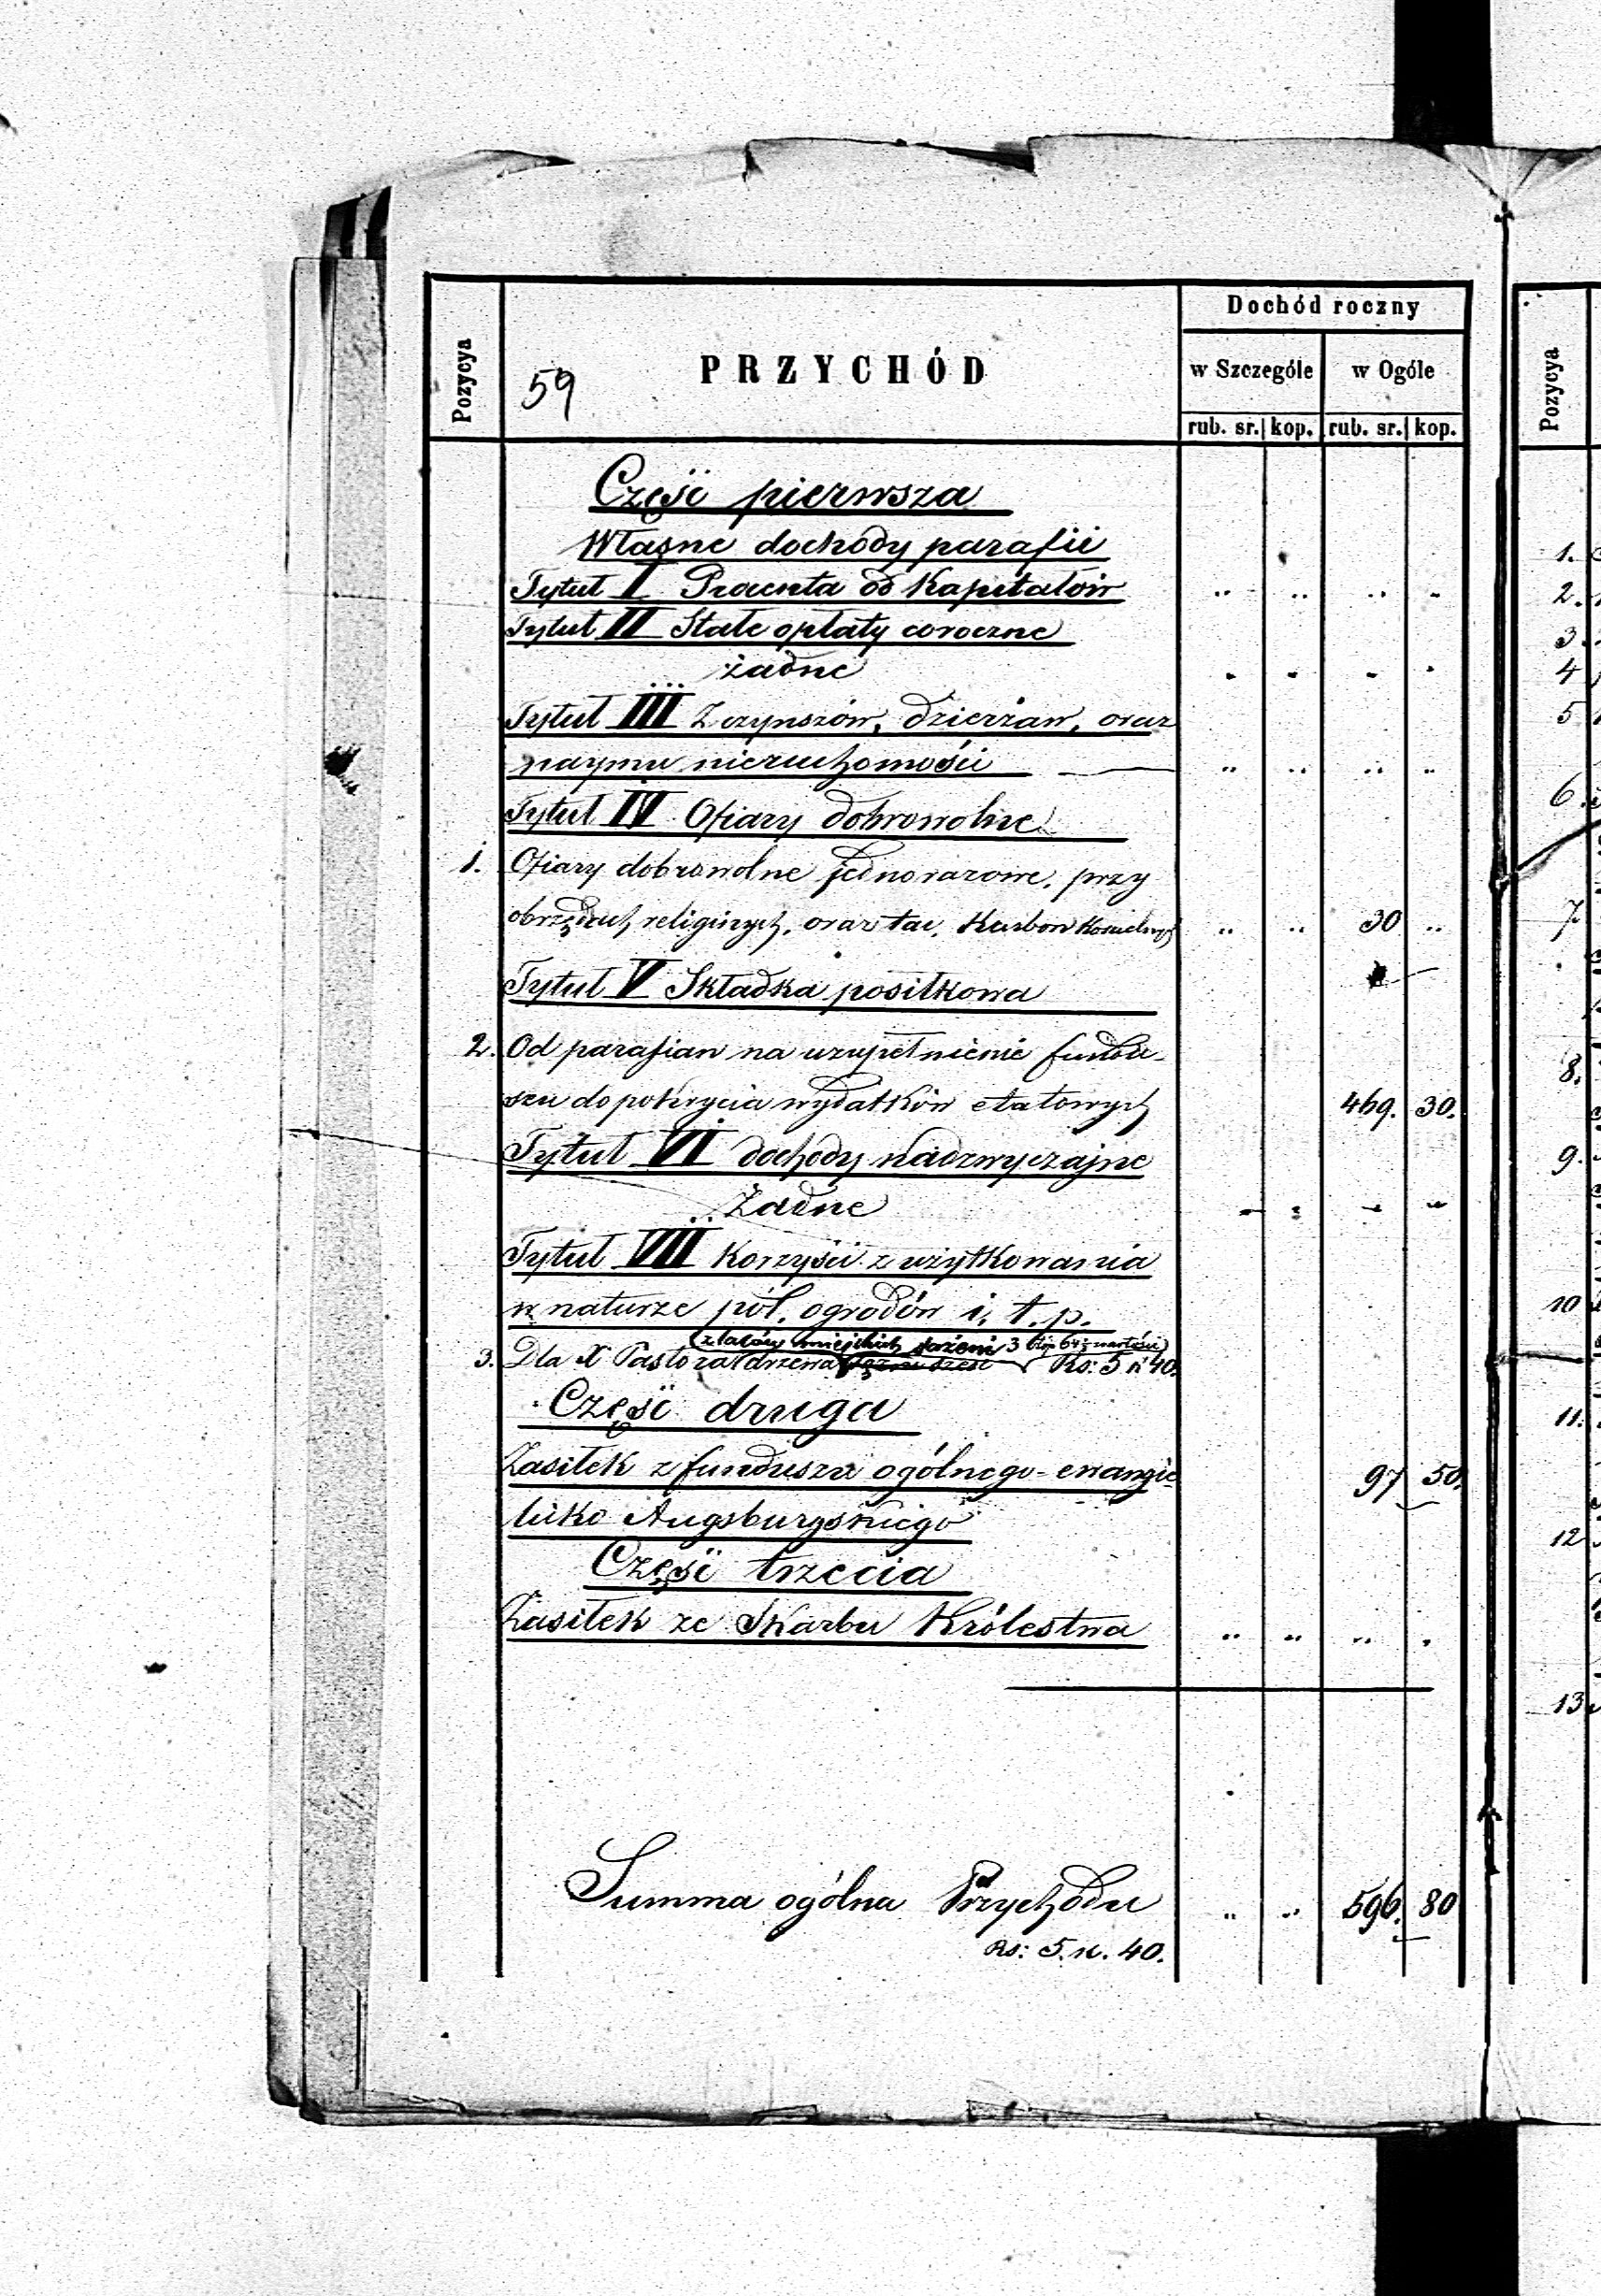 Dochód roczny
Pozycya
59
PRZYCHÓD
w Szczególe
w Ogóle
rub. sr. kop. rub. sr. kop.
Pozycya
Część pierwsza
Własne dochody parafii
Tytuł I Procenta od Kapitałów
Tytuł II Stałe opłaty coroczne
żadne
Tytuł III Z czynszów, dzierżaw, oraz
naymu nieruchomości
Tytuł IV Ofiary dobrowolne
1. Ofiary dobrowolne jednorazowe, przy
obrzędach religijnych, oraz tac, Karbon Kościelnych 30
Tytuł V Składka posiłkowa
2. Od parafian na uzupełnienie fundu-
szu do pokrycia wydatków etatowych 469. 30.
Tytuł VI dochody nadzwyczajne
Żadne
Tytuł VII Korzyści z użytkowania
w naturze pól, ogrodów i, t. p.
z lasów miejskich sążeni 3 64 wartości
3. Dla X Pastora drzewa Rs: 5 k 40.
Część druga
Zasiłek z funduszu ogólnego-ewangie- 97 50.
licko Augsburgskiego
Część trzecia
Zasiłek ze Skarbu Królestwa
Summa ogólna Przychodu 596. 80
Rs: 5. k. 40.
1.
2.
3.
4
5
6.
7.
8.
9.
10
11.
12
13